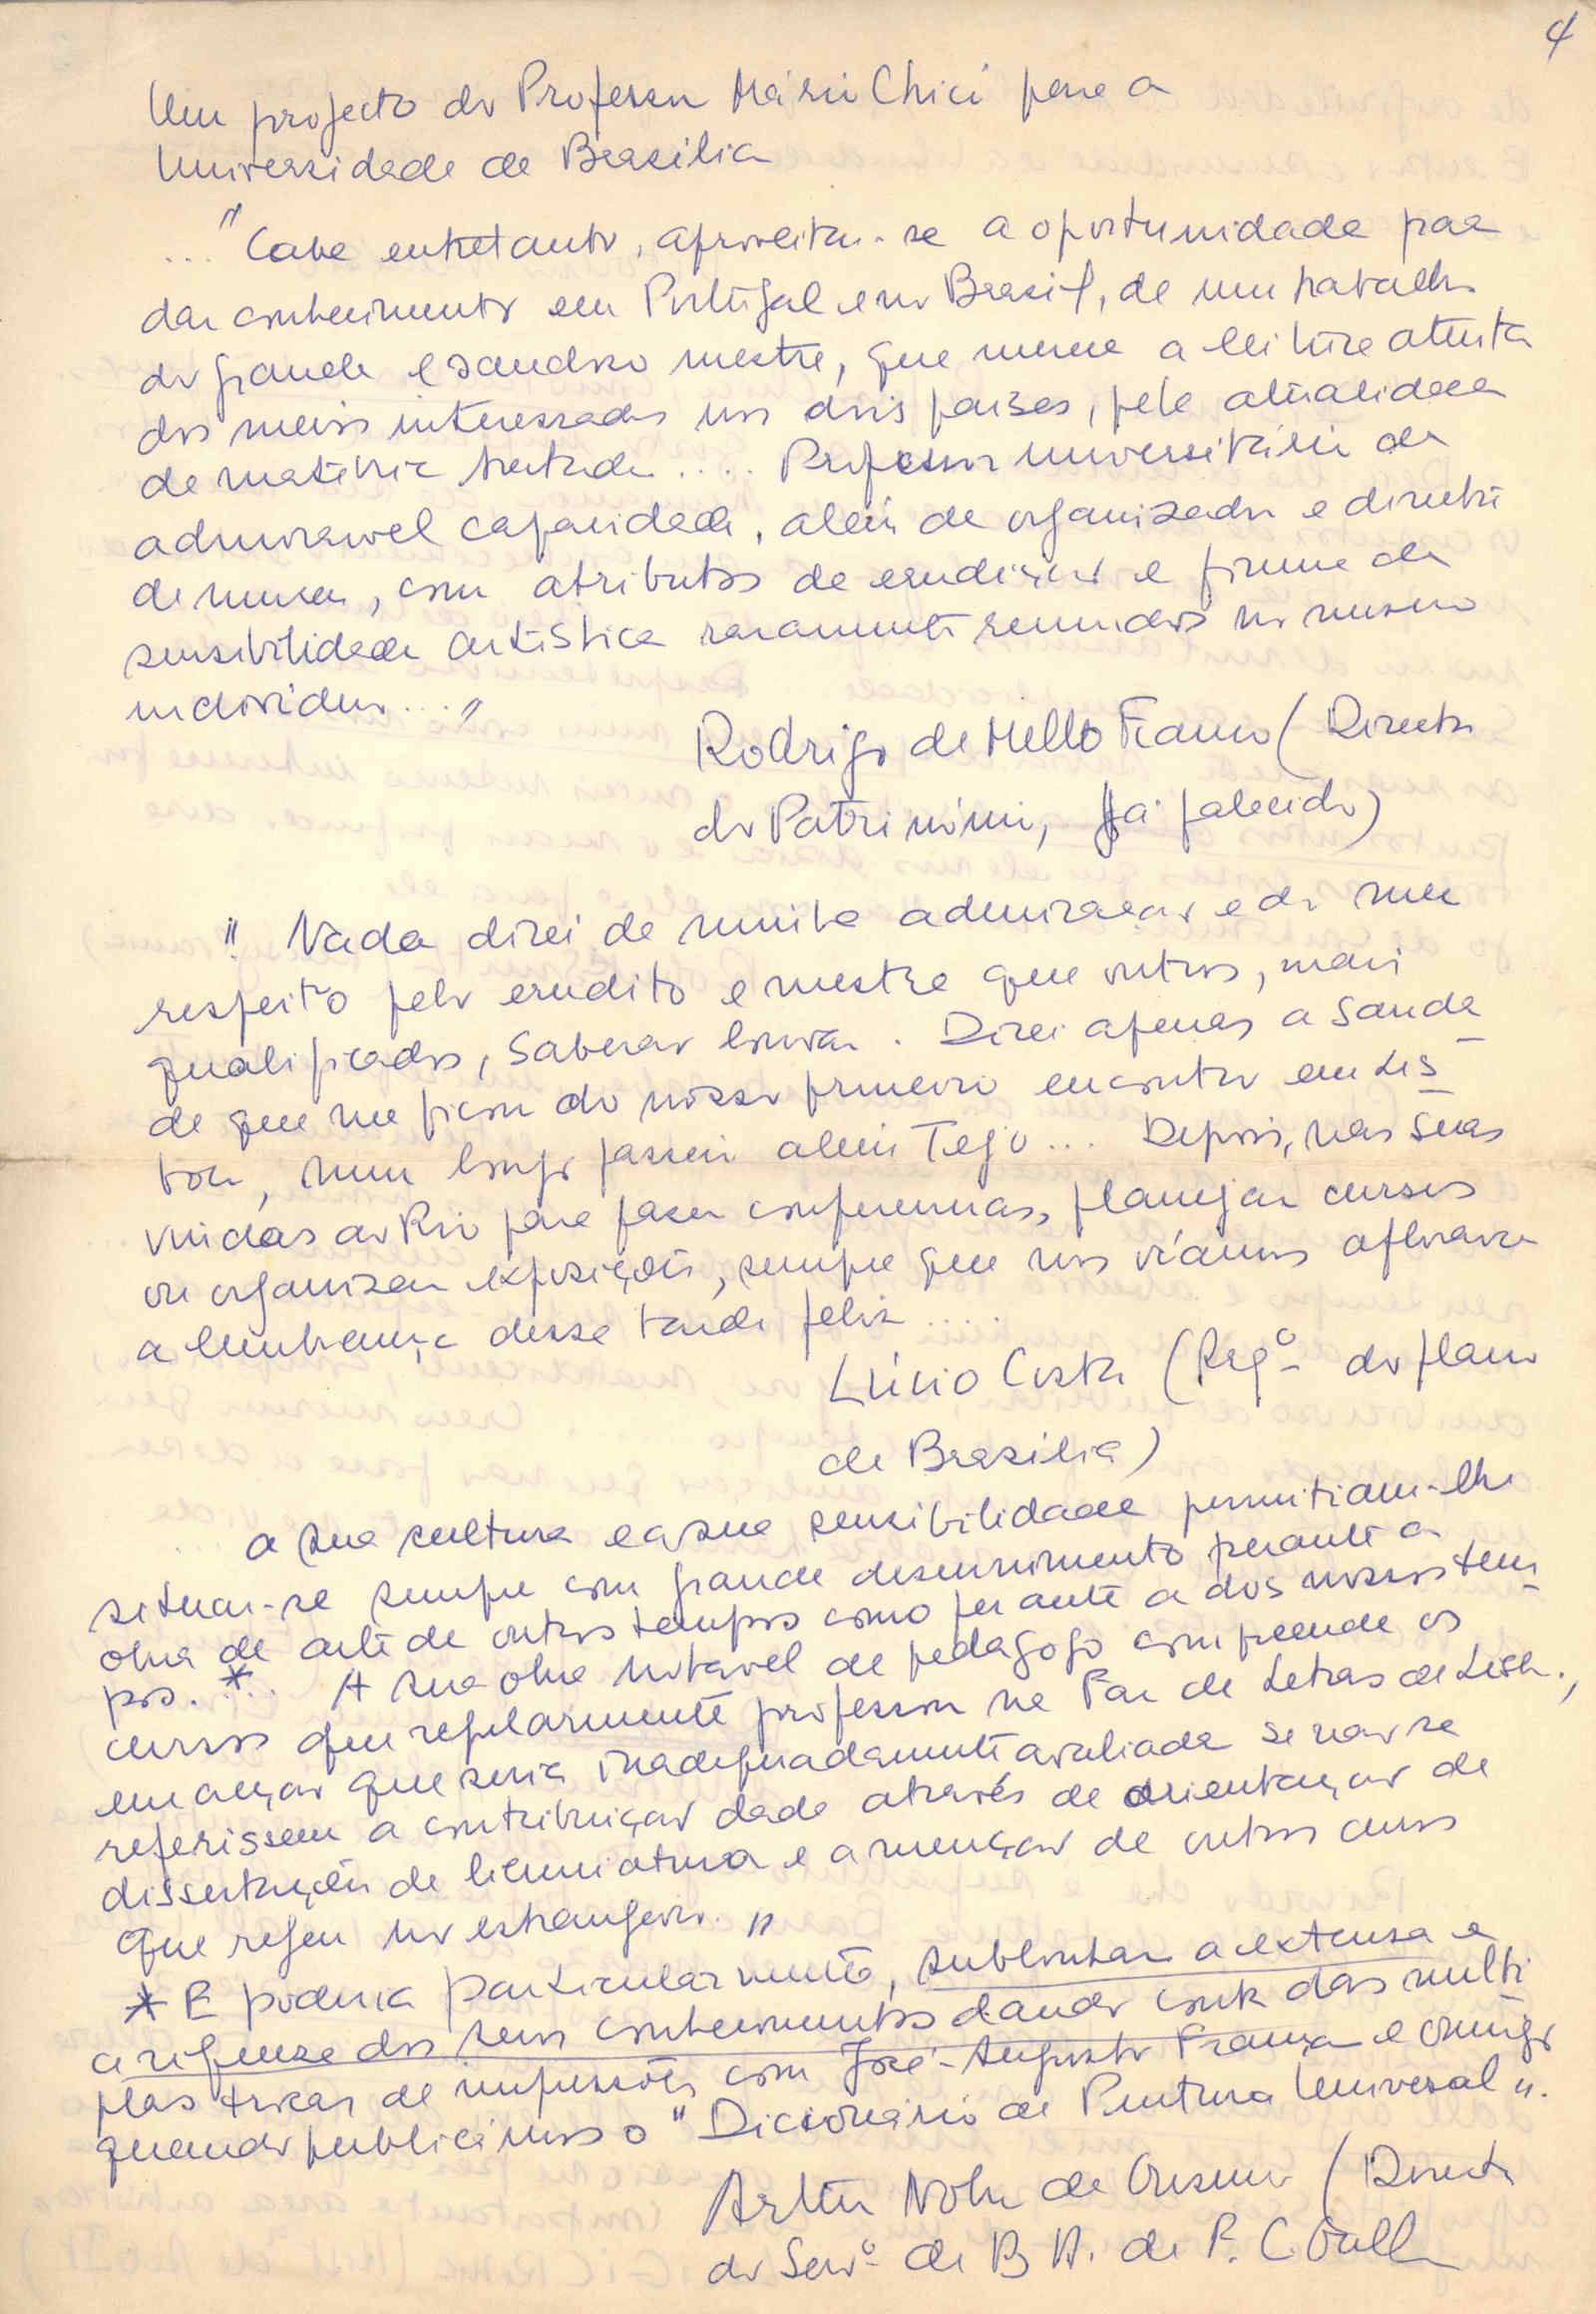 4
Um projecto do Professor Mário Chicó para a
Universidade de Brasilia
... "Cabe entretanto, aproveitar-se a oportunidade para
dar conhecimento em Portugal e no Brasil, de um trabalho
do grande e saudoso mestre, que merece a leitura atenta
dos meios interessados nos dois paises, pela atualidade
da matéria tratada .... Professor universitário de
admiravel capacidade, além de organizador e director
de museu, com atributos de erudição e firme de
sensibilidade artistica raramente reunidos no mesmo
individuo ..."
Rodrigo de Mello Franco (Director
do Património, já falecido)
" Nada direi da minha admiração e do meu
respeito pelo erudito e mestre que outros, mais
qualificados, saberão louvar. Direi apenas a sauda-
de que me ficou do nosso primeiro encontro em Lis-
boa, num longo passeio além Tejo ... Depois, nas suas
vindas ao Rio para fazer conferencias, planejar cursos
ou organizar exposições, sempre que nos viamos aflorava
a lembrança dessa tarde feliz ....
Lúcio Costa (Regº do plano
de Brasilia)
a sua cultura e a sua sensibilidade permitiam-lhe
situar-se sempre com grande discernimento perante a
obra de arte de outros tempos como perante a dos nossos tem-
pos. *... A sua obra notavel de pedagogo compreende os
cursos que regularmente professou na Fac de Letras de Lisb.,
em acção que seria inadequadamente avaliada se não se
referissem a contribuição dada através de orientação de
dissertações de licenciatura e a menção de outros cursos
que regeu no estrangeiro. "
* E poderia particularmente, sublinhar a extensa e
a riqueza dos seus conhecimentos dando conta das multi-
plas trocas de impressões com José-Augusto França e comigo
quando publicámos o "Dicionário de Pintura Universal".
Artur Nobre de Gusmão (Director
do Servº de B A. da F. C. Gulb